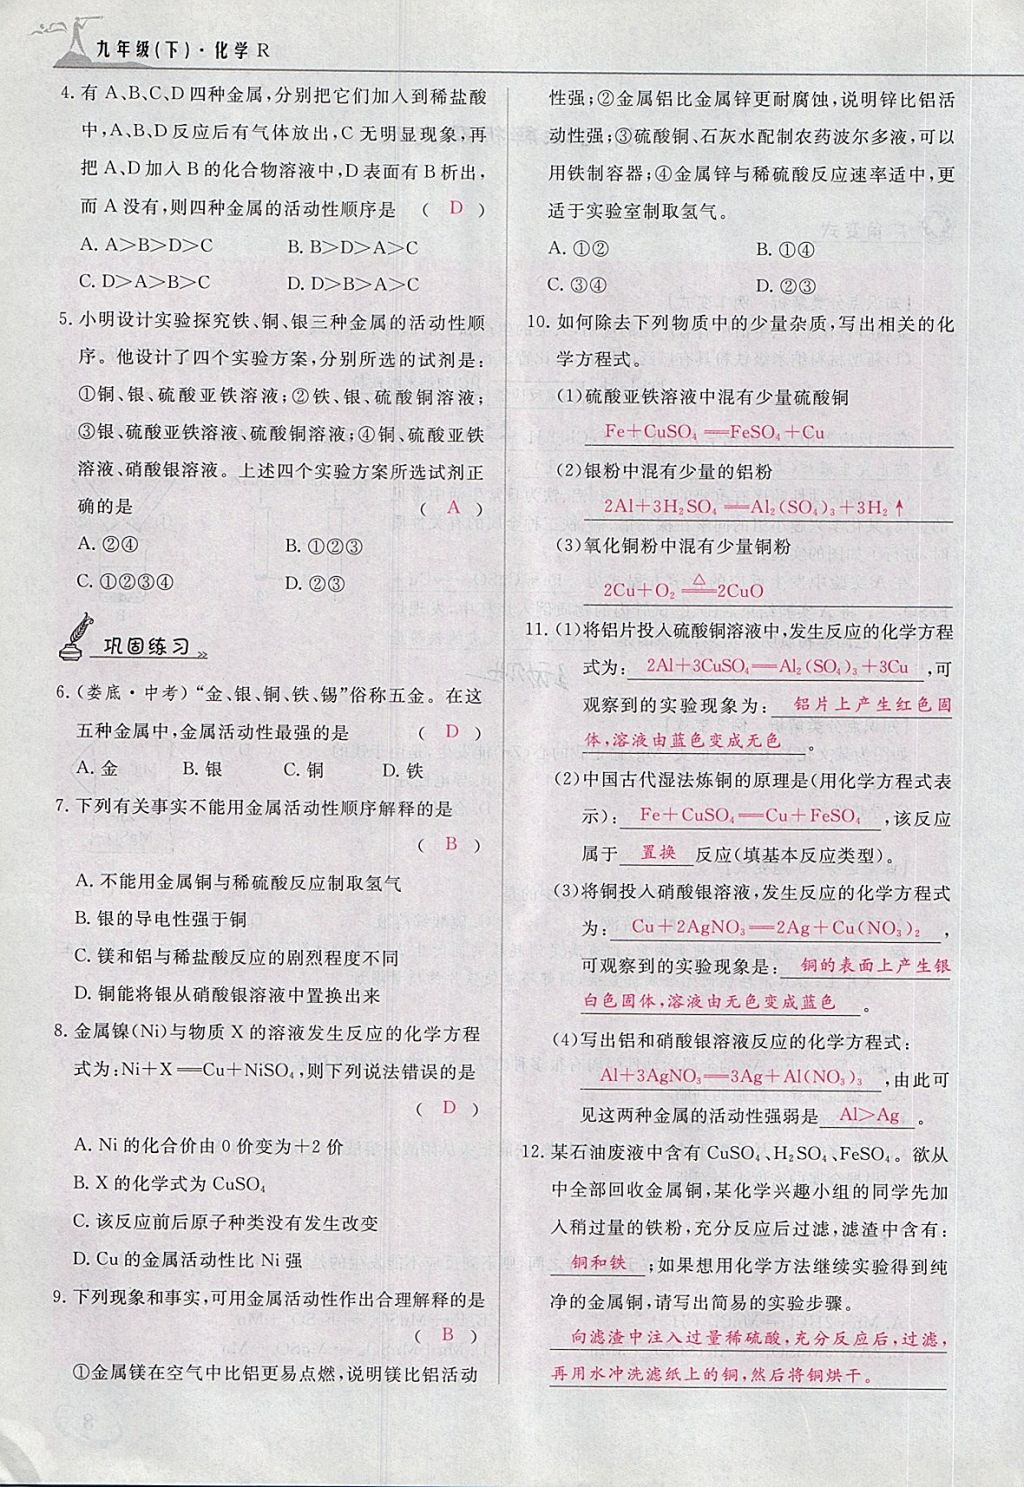 九年级(下)·化学 R
4. 有 A、B、C、D 四种金属,分别把它们加入到稀盐酸
中,A、B、D 反应后有气体放出,C 无明显现象,再
把 A、D 加入 B 的化合物溶液中,D 表面有 B 析出,
而 A 没有,则四种金属的活动性顺序是 ( D )
A. A>B>D>C B. B>D>A>C
C. D>A>B>C D. D>B>A>C
5. 小明设计实验探究铁、铜、银三种金属的活动性顺
序。他设计了四个实验方案,分别所选的试剂是:
①铜、银、硫酸亚铁溶液;②铁、银、硫酸铜溶液;
③银、硫酸亚铁溶液、硫酸铜溶液;④铜、硫酸亚铁
溶液、硝酸银溶液。上述四个实验方案所选试剂正
确的是 ( A )
A. ②④ B. ①②③
C. ①②③④ D. ②③
巩固练习
6. (娄底·中考)“金、银、铜、铁、锡”俗称五金。在这
五种金属中,金属活动性最强的是 ( D )
A. 金 B. 银 C. 铜 D. 铁
7. 下列有关事实不能用金属活动性顺序解释的是
( B )
A. 不能用金属铜与稀硫酸反应制取氢气
B. 银的导电性强于铜
C. 镁和铝与稀盐酸反应的剧烈程度不同
D. 铜能将银从硝酸银溶液中置换出来
8. 金属镍(Ni)与物质 X 的溶液发生反应的化学方程
式为:Ni+X══Cu+NiSO₄,则下列说法错误的是
( D )
A. Ni 的化合价由 0 价变为+2 价
B. X 的化学式为 CuSO₄
C. 该反应前后原子种类没有发生改变
D. Cu 的金属活动性比 Ni 强
9. 下列现象和事实,可用金属活动性作出合理解释的是
( B )
①金属镁在空气中比铝更易点燃,说明镁比铝活动
性强;②金属铝比金属锌更耐腐蚀,说明锌比铝活
动性强;③硫酸铜、石灰水配制农药波尔多液,可以
用铁制容器;④金属锌与稀硫酸反应速率适中,更
适于实验室制取氢气。
A. ①② B. ①④
C. ③④ D. ②③
10. 如何除去下列物质中的少量杂质,写出相关的化
学方程式。
(1)硫酸亚铁溶液中混有少量硫酸铜
Fe+CuSO₄══FeSO₄+Cu
(2)银粉中混有少量的铝粉
2Al+3H₂SO₄══Al₂(SO₄)₃+3H₂↑
(3)氧化铜粉中混有少量铜粉
2Cu+O₂══△══2CuO
11. (1)将铝片投入硫酸铜溶液中,发生反应的化学方程
式为: 2Al+3CuSO₄══Al₂(SO₄)₃+3Cu ,可
观察到的实验现象为: 铝片上产生红色固
体,溶液由蓝色变成无色 。
(2)中国古代湿法炼铜的原理是(用化学方程式表
示): Fe+CuSO₄══Cu+FeSO₄ ,该反应
属于 置换 反应(填基本反应类型)。
(3)将铜投入硝酸银溶液,发生反应的化学方程式
为: Cu+2AgNO₃══2Ag+Cu(NO₃)₂ ,
可观察到的实验现象是: 铜的表面上产生银
白色固体,溶液由无色变成蓝色 。
(4)写出铝和硝酸银溶液反应的化学方程式:
Al+3AgNO₃══3Ag+Al(NO₃)₃ ,由此可
见这两种金属的活动性强弱是 Al>Ag 。
12. 某石油废液中含有 CuSO₄、H₂SO₄、FeSO₄。欲从
中全部回收金属铜,某化学兴趣小组的同学先加
入稍过量的铁粉,充分反应后过滤,滤渣中含有:
铜和铁 ;如果想用化学方法继续实验得到纯
净的金属铜,请写出简易的实验步骤。
向滤渣中注入过量稀硫酸,充分反应后,过滤,
再用水冲洗滤纸上的铜,然后将铜烘干。